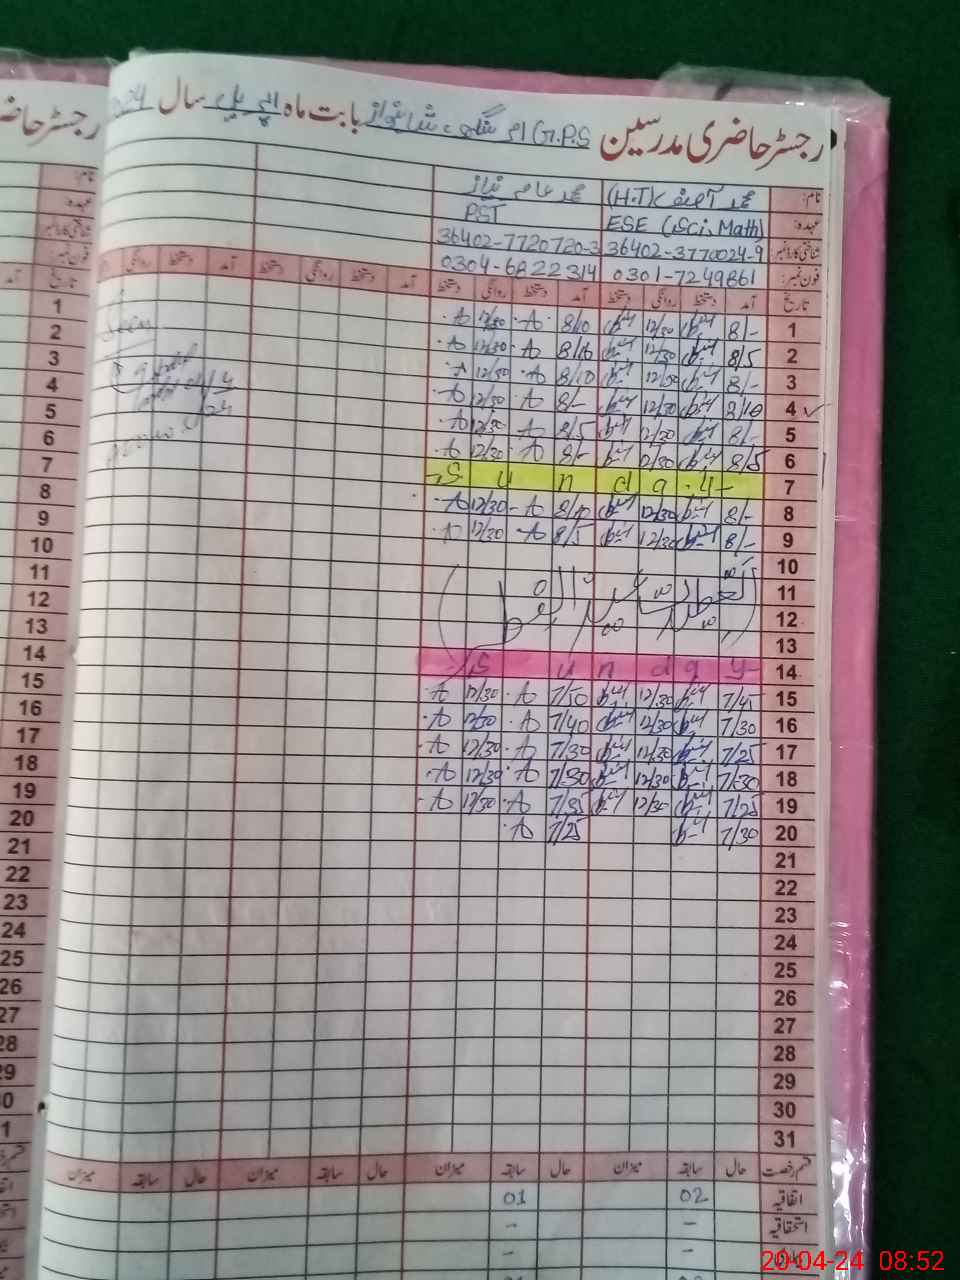 رجسٹر حاضری مدرسین G.P.S بابت ماہ اپریل سال
نام: محمد آصف (H.T) محمد عامر نیاز
عہدہ: ESE (Sci. Math) PST
شناختی کارڈ نمبر 36402-3770024-9 36402-7720720-3
فون نمبر: 0301-7249861 0304-6822314
تاریخ آمد دستخط روانگی دستخط آمد دستخط روانگی دستخط آمد دستخط روانگی دستخط آمد دستخط روانگی
1 8/- 12/30 8/10 12/30 1
2 8/5 12/30 8/10 12/30 2
3 8/- 12/30 8/10 12/30 3
4 8/10 12/30 8/- 12/30 4
5 8/- 12/30 8/5 12/30 5
6 8/5 12/30 8/- 12/30 6
7 S u n d a y 7
8 8/- 12/30 8/10 12/30 8
9 8/- 12/30 8/5 12/30 9
10 10
11 11
12 12
13 13
14 S u n d a y 14
15 7/45 12/30 7/50 12/30 15
16 7/30 12/30 7/40 12/30 16
17 7/25 12/30 7/30 12/30 17
18 7/30 12/30 7/30 12/30 18
19 7/25 12/30 7/35 12/30 19
20 7/30 7/25 20
21 21
22 22
23 23
24 24
25 25
26 26
27 27
28 28
29 29
30
31
قسم رخصت حال سابقہ میزان حال سابقہ میزان حال سابقہ میزان حال سابقہ میزان
اتفاقیہ 02 01
استحقاقیہ - -
- -
Seen
20-04-24 08:52